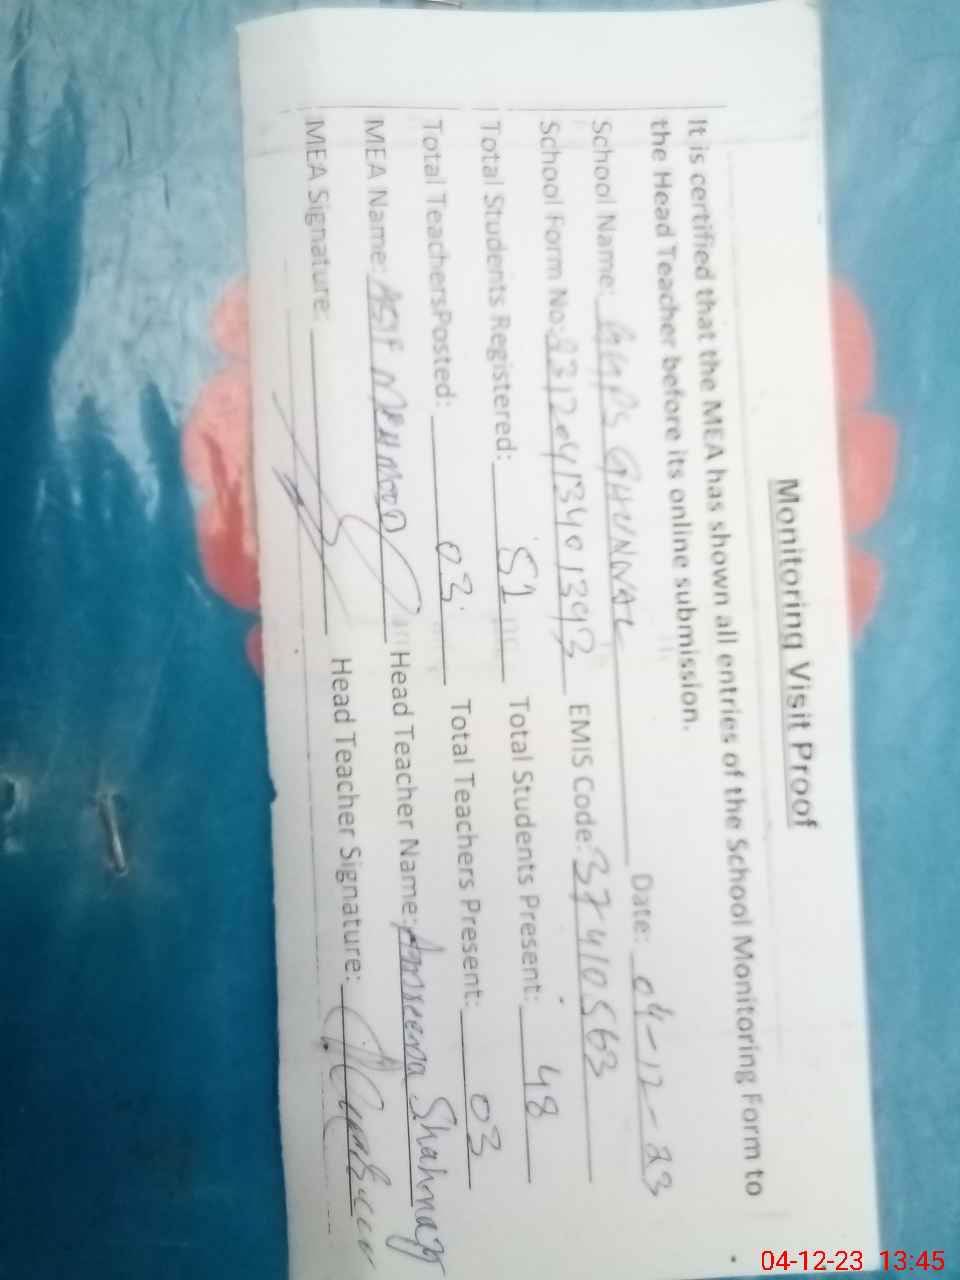 Monitoring Visit Proof
It is certified that the MEA has shown all entries of the School Monitoring Form to
the Head Teacher before its online submission.
School Name: GGPS GHUNNAL Date: 04-12-23
School Form No: EMIS Code: 37410563
Total Students Registered: 51 Total Students Present: 48
Total TeachersPosted: 03 Total Teachers Present: 03
MEA Name: ASIF MEHMOOD Head Teacher Name: Ameena Shahnaz
MEA Signature: Head Teacher Signature:
04-12-23 13:45